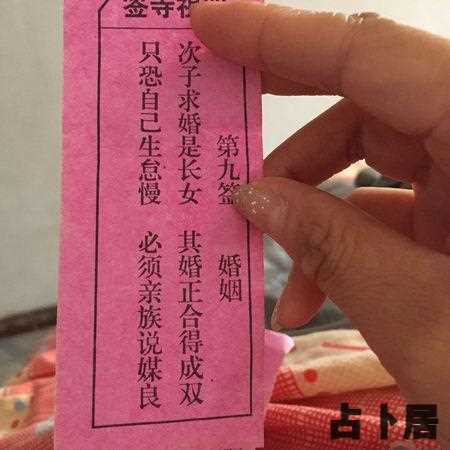 签寺祖
第九签 婚姻
次子求婚是长女 其婚正合得成双
只恐自己生怠慢 必须亲族说媒良
占卜居